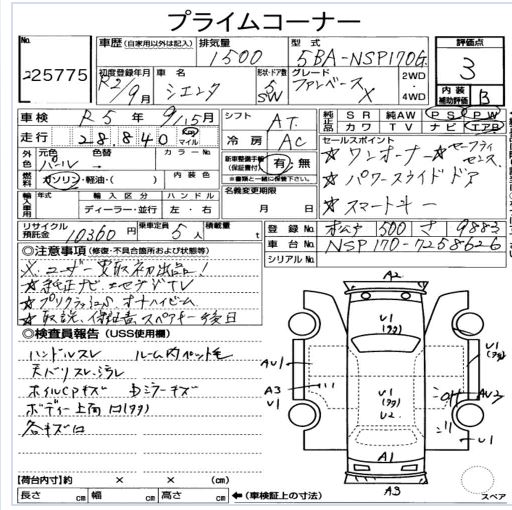 プライムコーナー
No. 25775
車歴 (自家用以外は記入) 排気量 1500 型式 5BA-NSP170G 評価点 3
初度登録年月 R2/9月 車名 シエンタ 形状・ドア数 5 SW グレード ファンベース X 2WD・4WD 内装補助評価 B
車検 R5年9/15月 シフト AT 純正品 SR 純AW PS PW
走行 28,840 km マイル 冷房 AC カワ TV ナビ エアB
外色 元色 パール 色替 カラーNo. 新車整備手帳(保証書付) 有・無 ※書類と一緒に保管下さい。 セールスポイント
☆ワンオーナー ☆セーフティセンス
燃料 ガソリン・軽油・( ) 内装色 ☆パワースライドドア
輸入車用 年式 輸入区分 ハンドル 名義変更期限 ☆スマートキー
ディーラー・並行 左・右 月 日
リサイクル預託金 10360円 乗車定員 5人 積載量 t 登録No. 500 さ 9883
車台No. NSP170-7258626
シリアルNo.
◎注意事項 (修復・不具合箇所および状態等)
※ユーザー買取初出品!
☆純正ナビ、エセグTV
☆プリクラッシュS オートハイビーム
☆取説、保証書、スペアキー後日
◎検査員報告 (USS使用欄)
ハンドルスレ ルーム内ペット毛
天バリスレ、ヨゴレ
ホイルCPキズ Dミラーキズ
ボディー上面
各キズ
A2
U1
U1
AU1
A3
U1
U1
U2
AU3
U1
A1
A3
スペア
【荷台内寸】約 × × (cm)
長さ cm 幅 cm 高さ cm ←(車検証上の寸法)